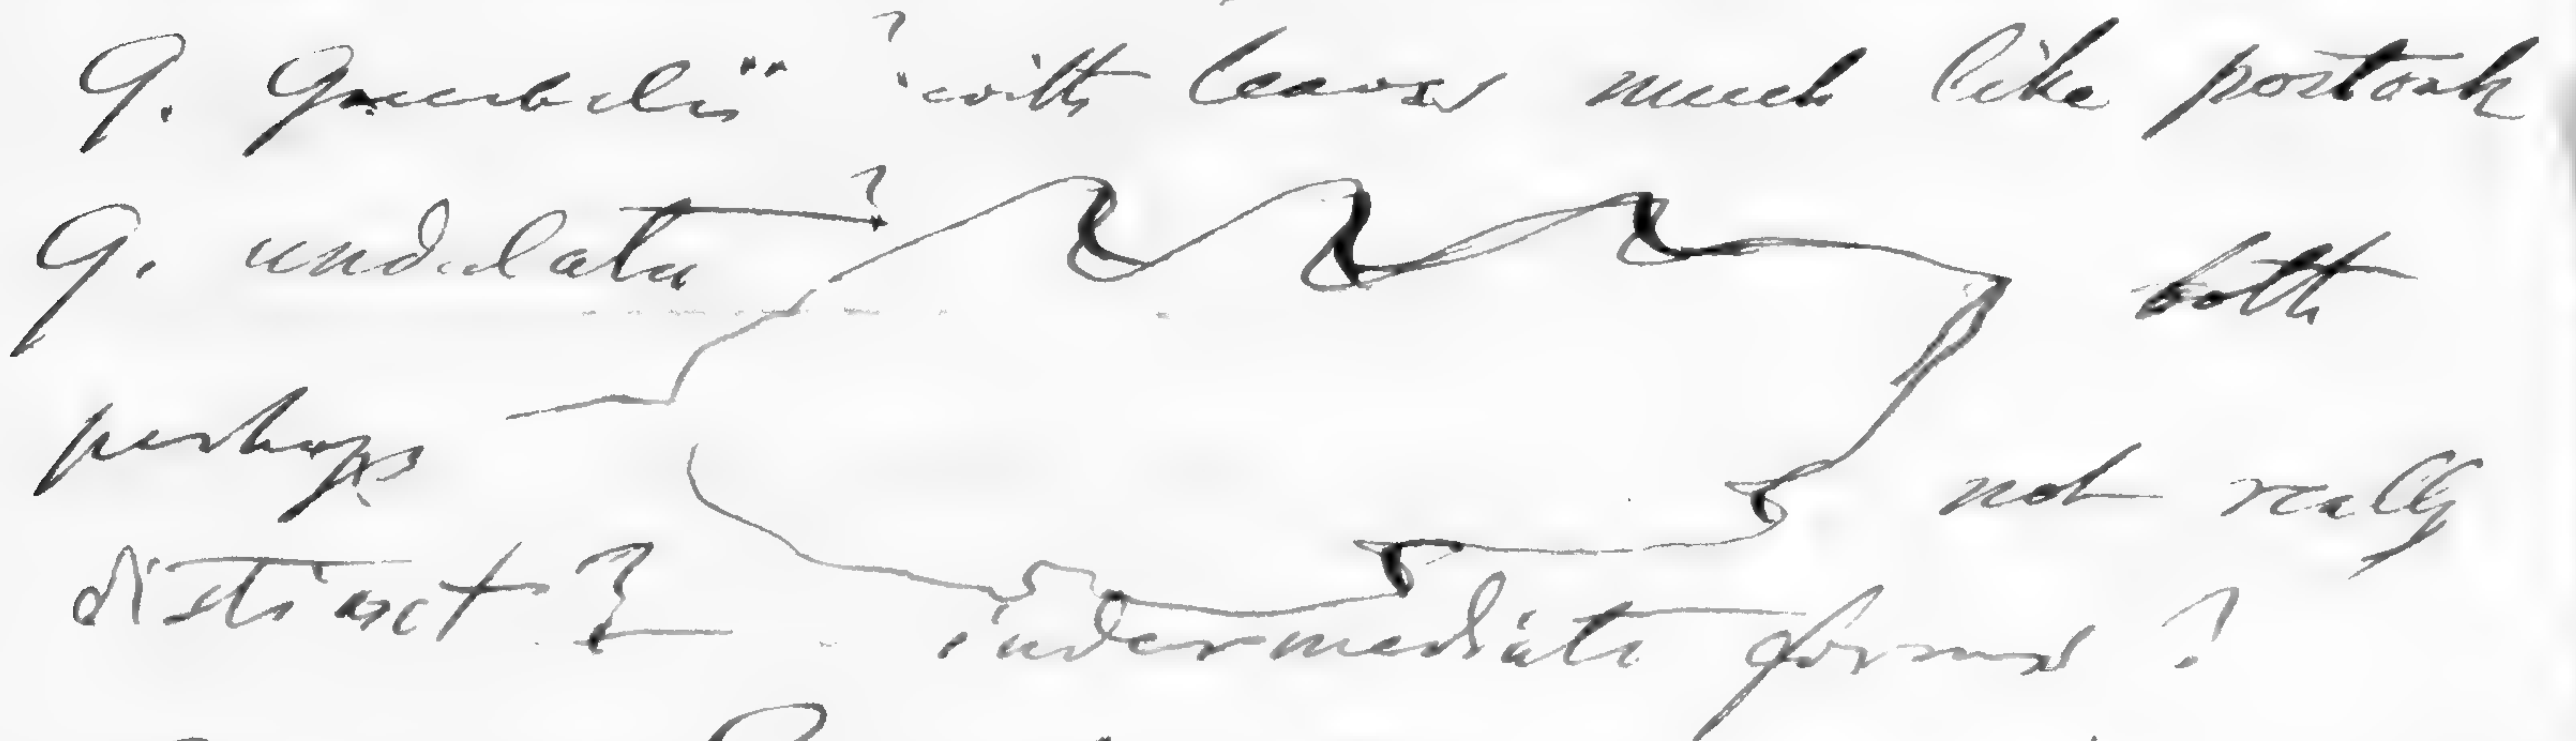 Q. Gambelii ? with leaves much like postoak
Q. undulata ? both
perhaps not really
distinct ? intermediate forms ?